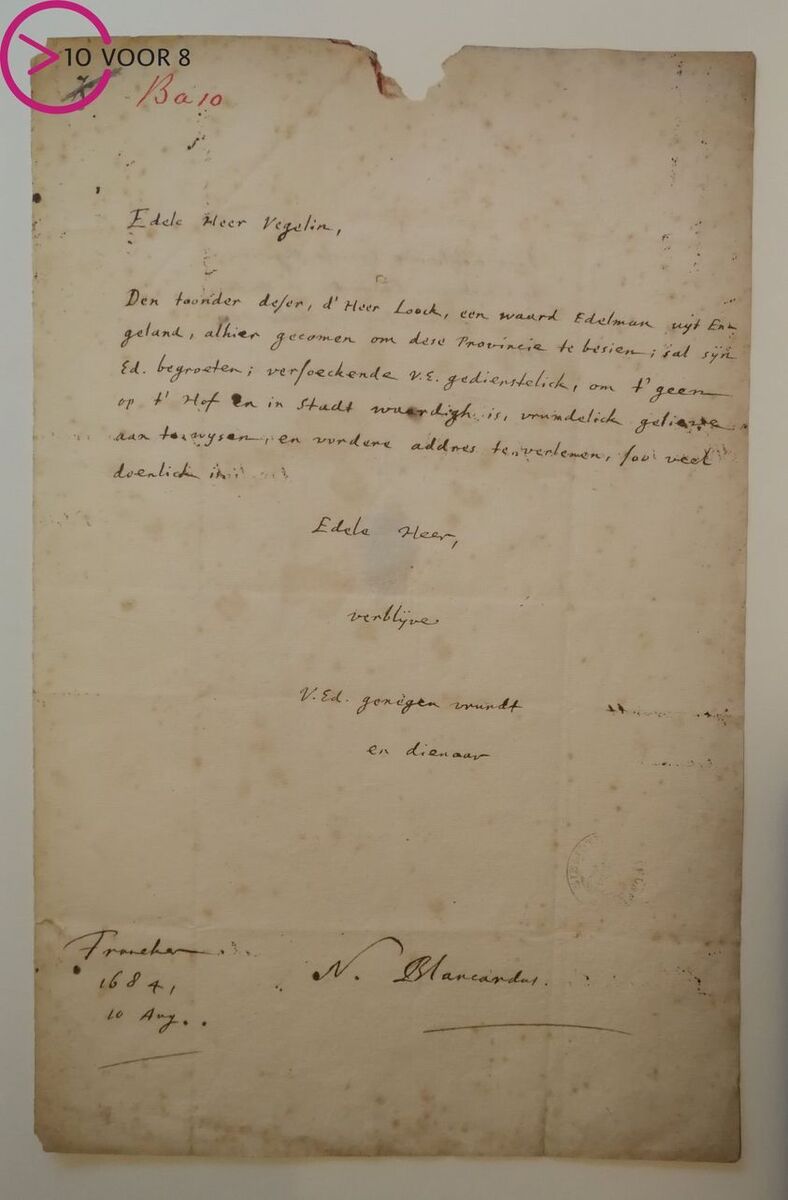 10 VOOR 8
Ba 10
Edele Heer Vegelin,
Den toonder deser, d' Heer Loock, een waard Edelman uijt En-
geland, alhier gecomen om dese Provincie te besien; sal sijn
Ed. begroeten; versoeckende V.E. gedienstelick, om t' geen
op t' Hof en in Stadt waardigh is, vrundelick gelieve
aan te wijsen, en vordere addres te verlenen, soo veel
doenlick is
Edele Heer,
verblijve
V.Ed. genegen vrundt
en dienaar
Franeker
1684,
10 Aug.
N. Blancardus.